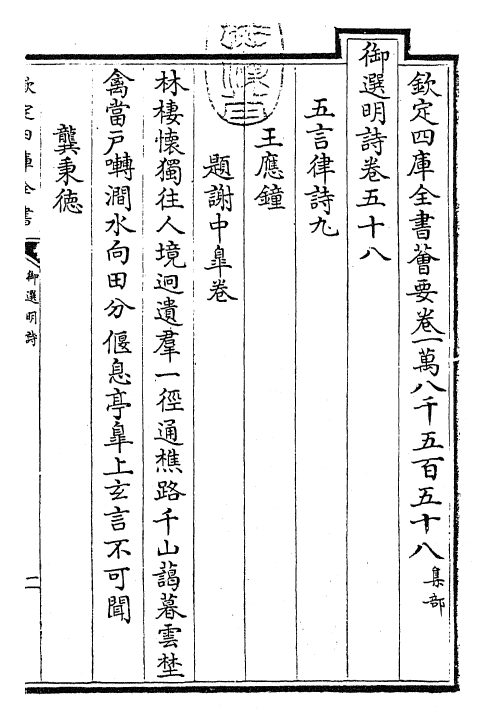 欽定四庫全書薈要卷一萬八千五百五十八 集部
御選明詩卷五十八
五言律詩九
王應鐘
題謝中臯卷
林棲懷獨往人境迥遺羣一徑通樵路千山藹暮雲埜
禽當戶囀澗水向田分偃息亭臯上玄言不可聞
龔秉德
欽定四庫全書
御選明詩